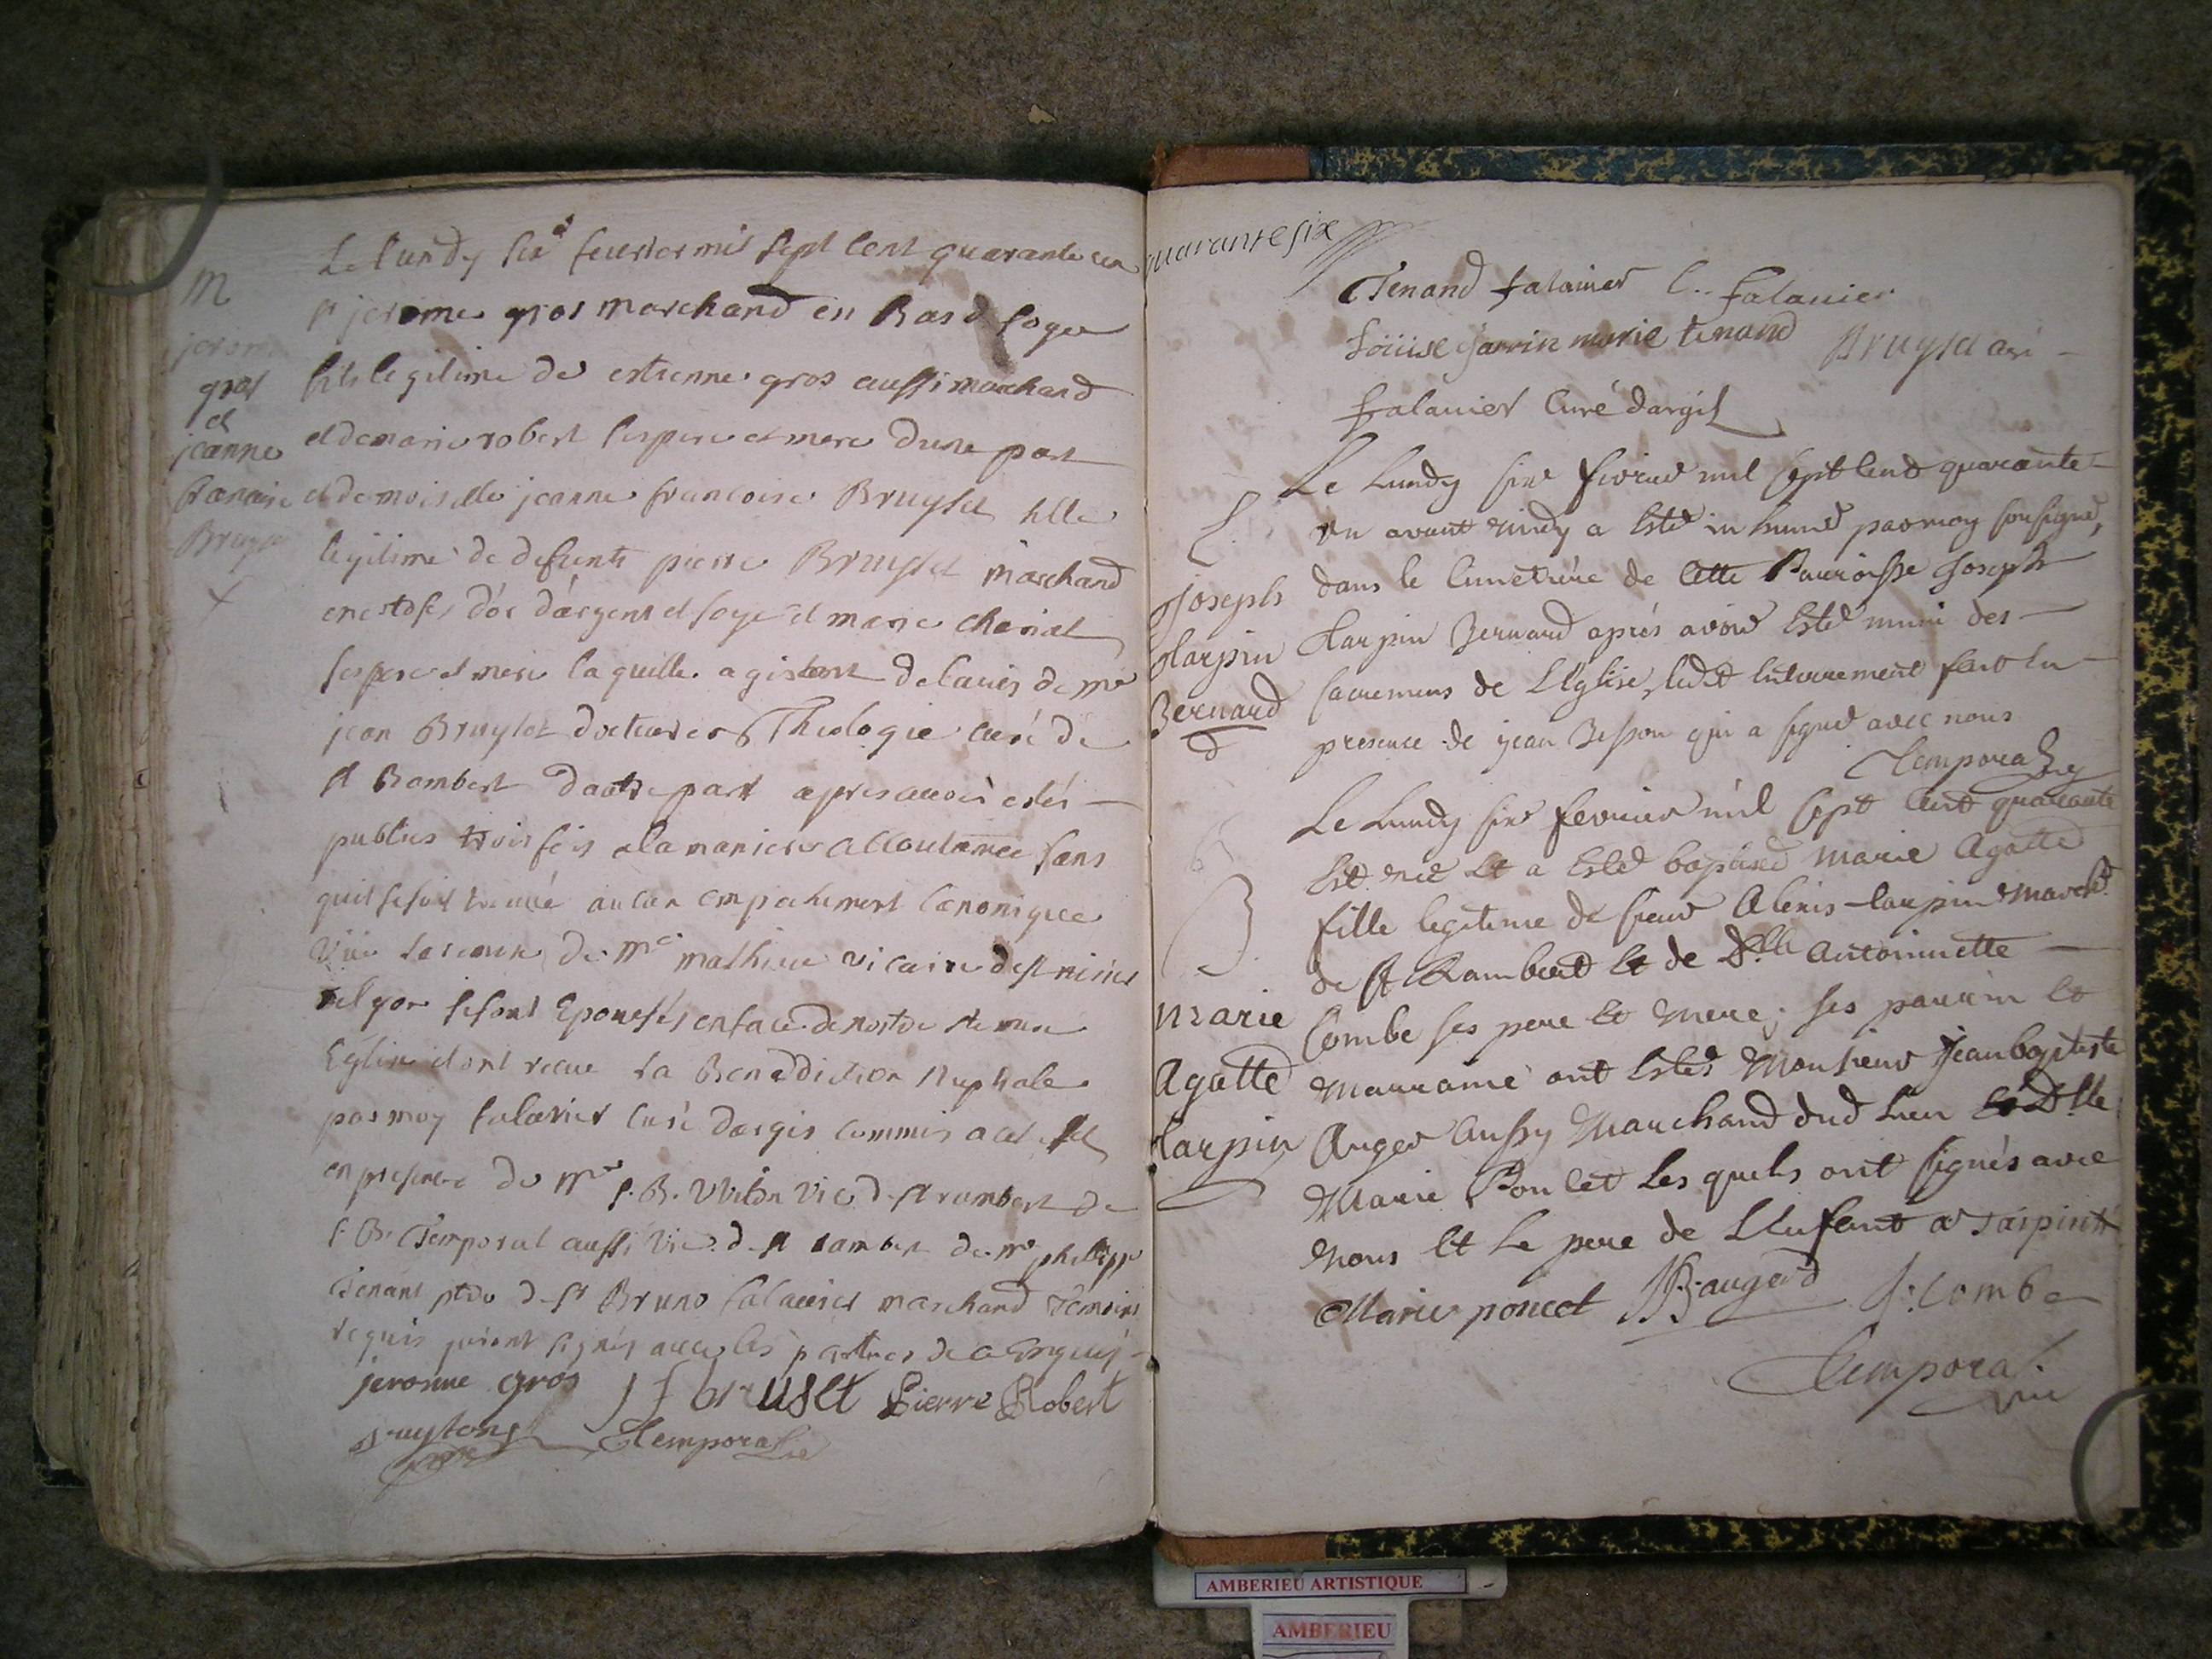 M
jerome
gros
et
jeanne
francoise
Bruyset
Le lundy six feuvrier mil sept cent quarante un
sr jerome gros marchand en Bas de soye
fils legitime de estienne gros aussi marchand
et de marie robert ses pere et mere dune part
et demoiselle jeanne francoise Bruyset fille
legitime de defunts pierre Bruyset marchand
en estofes dór dárgent et soye et marie
ses pere et mere laquelle agissant de lauis de mre
jean Bruyset docteur en Theologie curé de
st Rambert dautre part apres auoir estés
publies trois fois a la maniere accoutumee sans
quil se soit trouué aucun empechement canonique
Vüe la remise de mre mathieu vicaire de st nisier
de lyon se sont Epousés en face de nostre ste mere
Eglise et ont receu la Benediction Nuptiale
par moy falavier curé dargis commis a cet effet
en presence de mre J. B. vic de st rambert de
J. B. Temporal aussi vic. de st rambert de mre philippe
Tenant ptre de sr Bruno falavier marchand Temoins
requis qui ont signés auec les parties de ce enquis
jerosme gros J f bruset Pierre Robert
Temporal vic
quarante six
Tenand falavier C.. falavier
Loüise Jarrin marie tenand Bruyset
falavier Curé dargis
Le Lundy six fevrier mil sept cent quarante
un avant midy a Esté inhumé par moy soussigné,
S.
Joseph
Harpin
Bernard
d
dans le Cimetiere de Cette Parroisse Joseph
Harpin Bernard aprés avoir Esté muni des
sacremens de LEglise, ledt Enterrement fait En
presence de jean Besson qui a signé avec nous
Temporal vic
B
Le Lundy six fevrier mil sept Cent quarante
Est née Et a Esté baptisée Marie Agatte
fille legitime de sieur Alexis tarpin Marcht
de st Rambert Et de Dlle Antoinette
Marie
Agatte
tarpin
Combe ses pere Et Mere; ses parrin Et
Marraine ont Estés Monsieur Jean baptiste
Auger Aussy Marchand dud Lieu Et Dlle
Marie Poncet Les quels ont signés avec
Nous Et Le pere de LEnfant a tarpin
Marie poncet JB. augerd J. Combe
Temporal
vic
AMBERIEU ARTISTIQUE
AMBERIEU